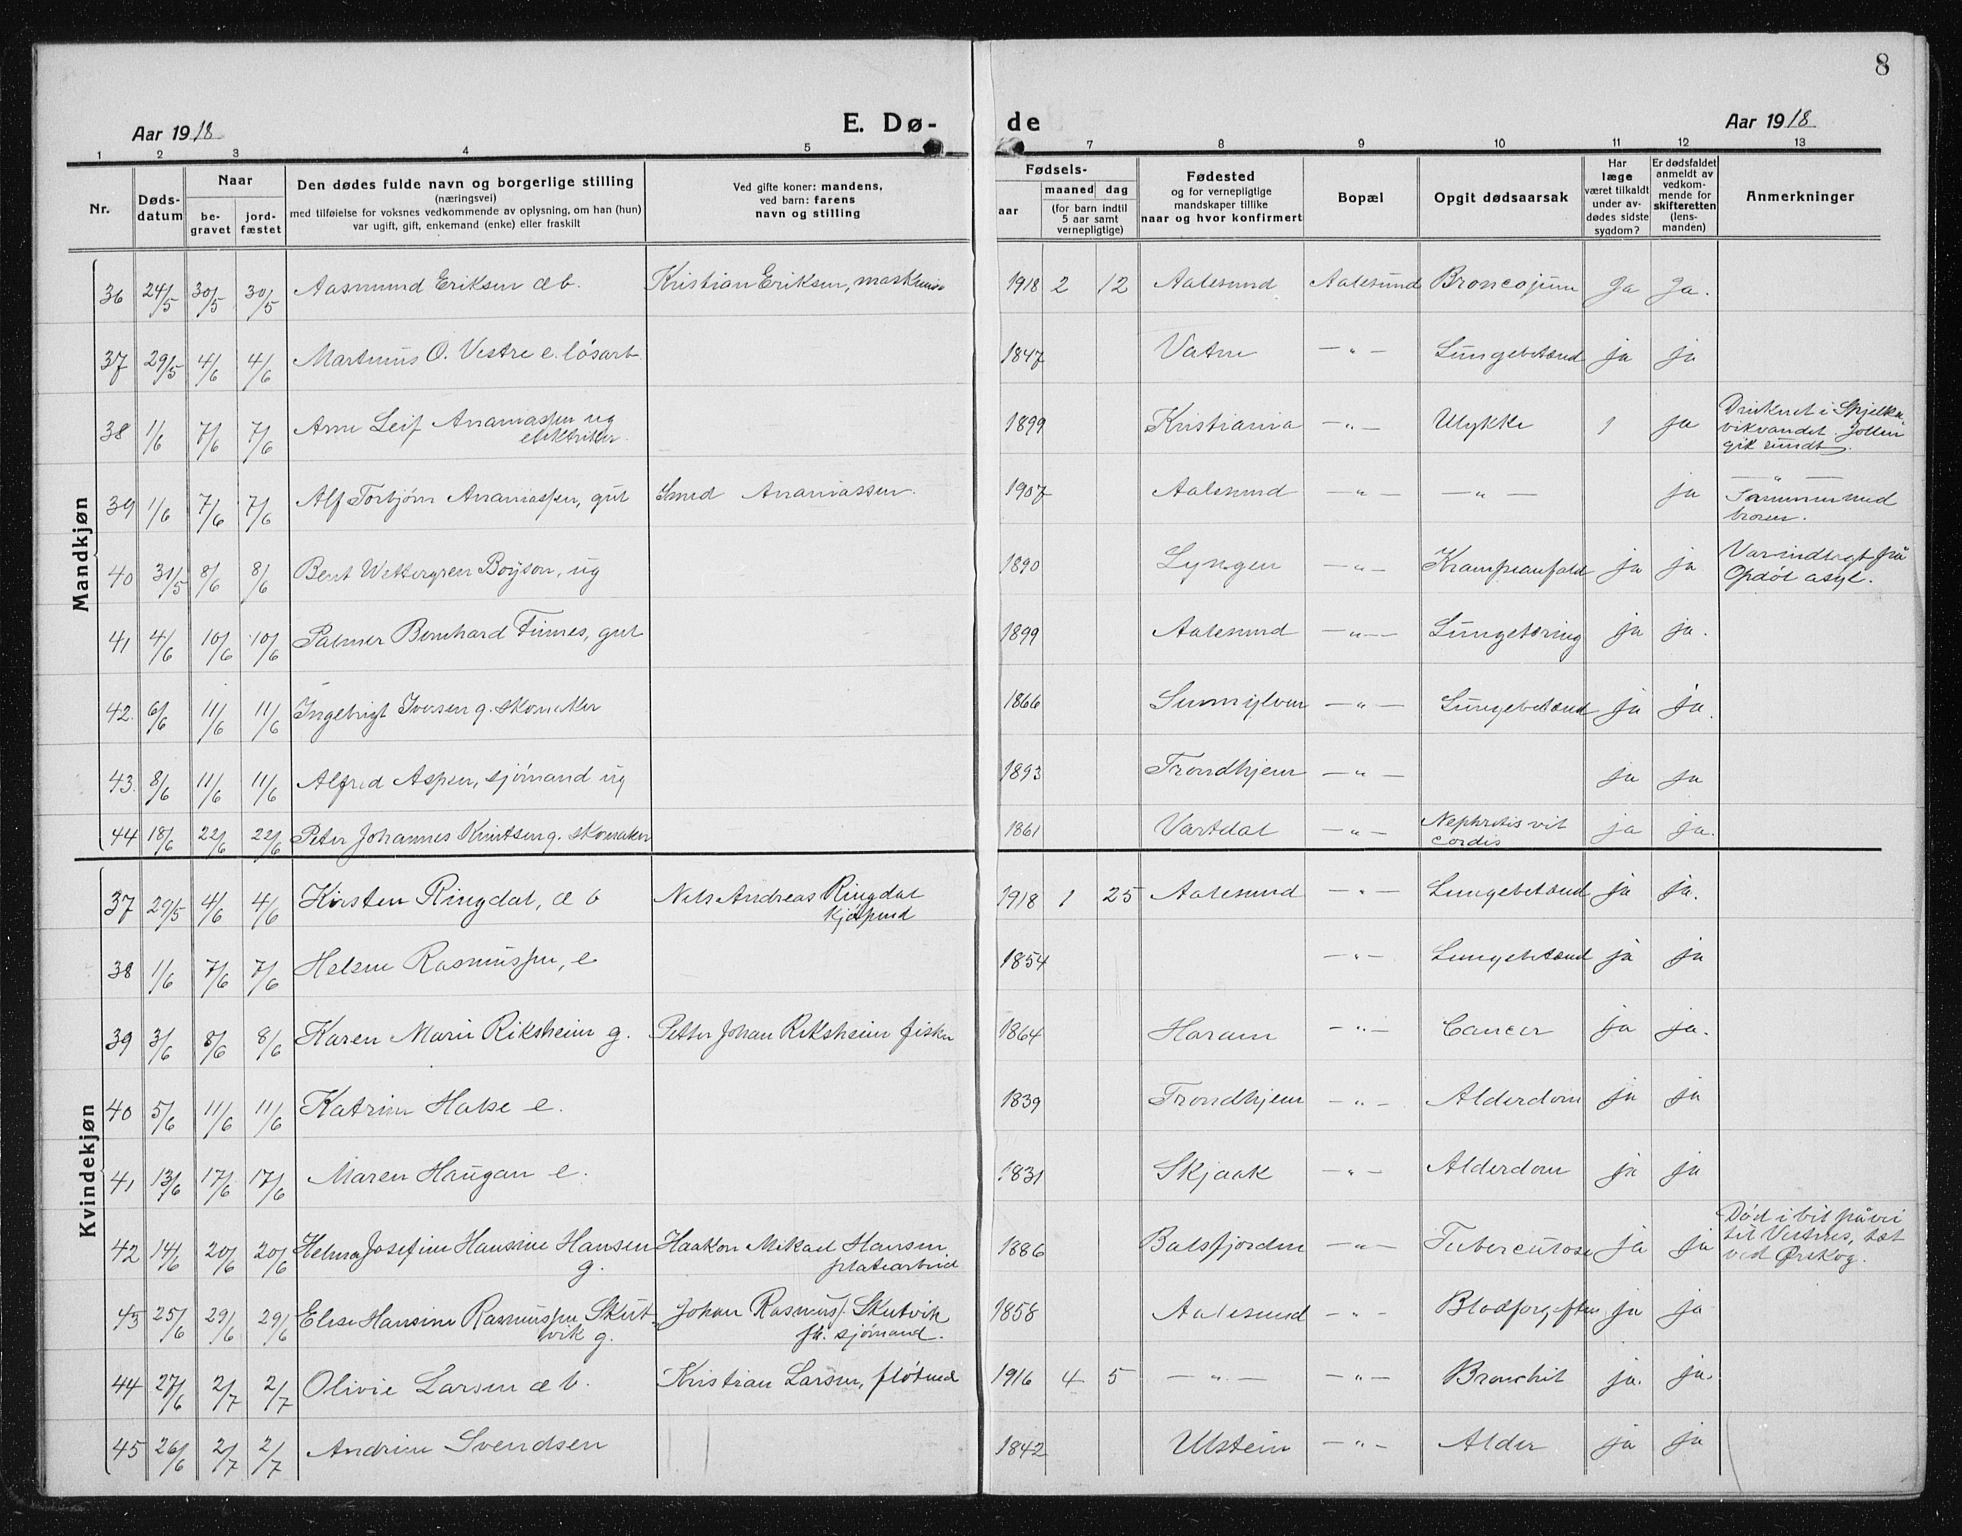 8
Aar 1918 E. Dø- de Aar 1918
1 2 3 4 5 7 8 9 10 11 12 13
Nr. Døds-datum Naar be-gravet jord-fæstet Den dødes fulde navn og borgerlige stilling (næringsvei) med tilføielse for voksnes vedkommende av oplysning, om han (hun) var ugift, gift, enkemand (enke) eller fraskilt Ved gifte koner: mandens, ved barn: farens navn og stilling Fødsels- aar maaned dag (for barn indtil 5 aar samt vernepligtige) Fødested og for vernepligtige mandskaper tillike naar og hvor konfirmert Bopæl Opgit dødsaarsak Har læge været tilkaldt under av-dødes sidste sygdom? Er dødsfaldet anmeldt av vedkom-mende for skifteretten (lens-manden) Anmerkninger
Mandkjøn
36 24/5 30/5 30/5 Aasmund Eriksen æ b. Kristian Eriksen, 1918 2 12 Aalesund Aalesund Ja Ja.
37 29/5 4/6 4/6 Martinus O. Vestre e. løsarb. 1847 Vatne -"- Lungebetænd ja ja
38 1/6 7/6 7/6 Arne Leif Ananiassen ug elektriker. 1899 Kristiania -"- Ulykke 1 ja Druknet i Spjelka vikvandet. Jollen gik rundt.
39 1/6 7/6 7/6 Alf Torbjørn Ananiassen, gut Smed Ananiassen. 1907 Aalesund -"- -"- ja -"- Sammen med broren.
40 31/5 8/6 8/6 Bent Wettergren Boyson, ug 1890 Lyngen -"- Krampeanfald ja ja Var indlagt på Opdøl asyl.
41 4/6 10/6 10/6 Palmer Bernhard Finnes, gut 1899 Aalesund -"- Lungetæring ja ja.
42. 6/6 11/6 11/6 Ingebrigt Iversen g. skomaker 1866 Sunnylven -"- Lungebetænd ja ja.
43. 8/6 11/6 11/6 Alfred Aspen, sjømand ug 1893 Trondhjem -"- ja ja
44 18/6 22/6 22/6 Peter Johannes Knutsen g. skomaker 1861 Vartdal -"- Nephritis vit cordis ja ja.
Kvindekjøn
37 29/5 4/6 4/6 Kirsten Ringdal, æ b Nils Andreas Ringdal kjøpmd 1918 1 25 Aalesund -"- Lungebetænd ja ja.
38 1/6 7/6 7/6 Helene Rasmussen, e 1854 -"- Lungebetænd ja ja
39 3/6 8/6 8/6 Karen Marie Riksheim g. Petter Johan Riksheim fisker 1864 Haram -"- Cancer ja ja.
40 5/6 11/6 11/6 Katrine Halse e. 1839 Trondhjem -"- Alderdom ja ja
41 13/6 17/6 17/6 Maren Haugan e. 1831 Skjaak -"- Alderdom ja ja
42 14/6 20/6 20/6 Helma Josefine Hansine Hansen g. Haakon Mikael Hansen platearbeid 1886 Balsfjorden -"- Tuberculose ja ja Død i bil på vei til Vestnes, tæt ved Ørskog.
43 25/6 29/6 29/6 Elise Hansine Rasmussen Skutvik g. Johan Rasmuss. Skutvik fh. sjømand. 1858 Aalesund -"- Blodforgiften ja ja
44 27/6 2/7 2/7 Olivie Larsen æ b. Kristian Larsen, fløtmd 1916 4 5 -"- -"- Bronchit ja. ja.
45 26/6 2/7 2/7 Andrine Svendsen 1842 Ulstein -"- Alder ja ja